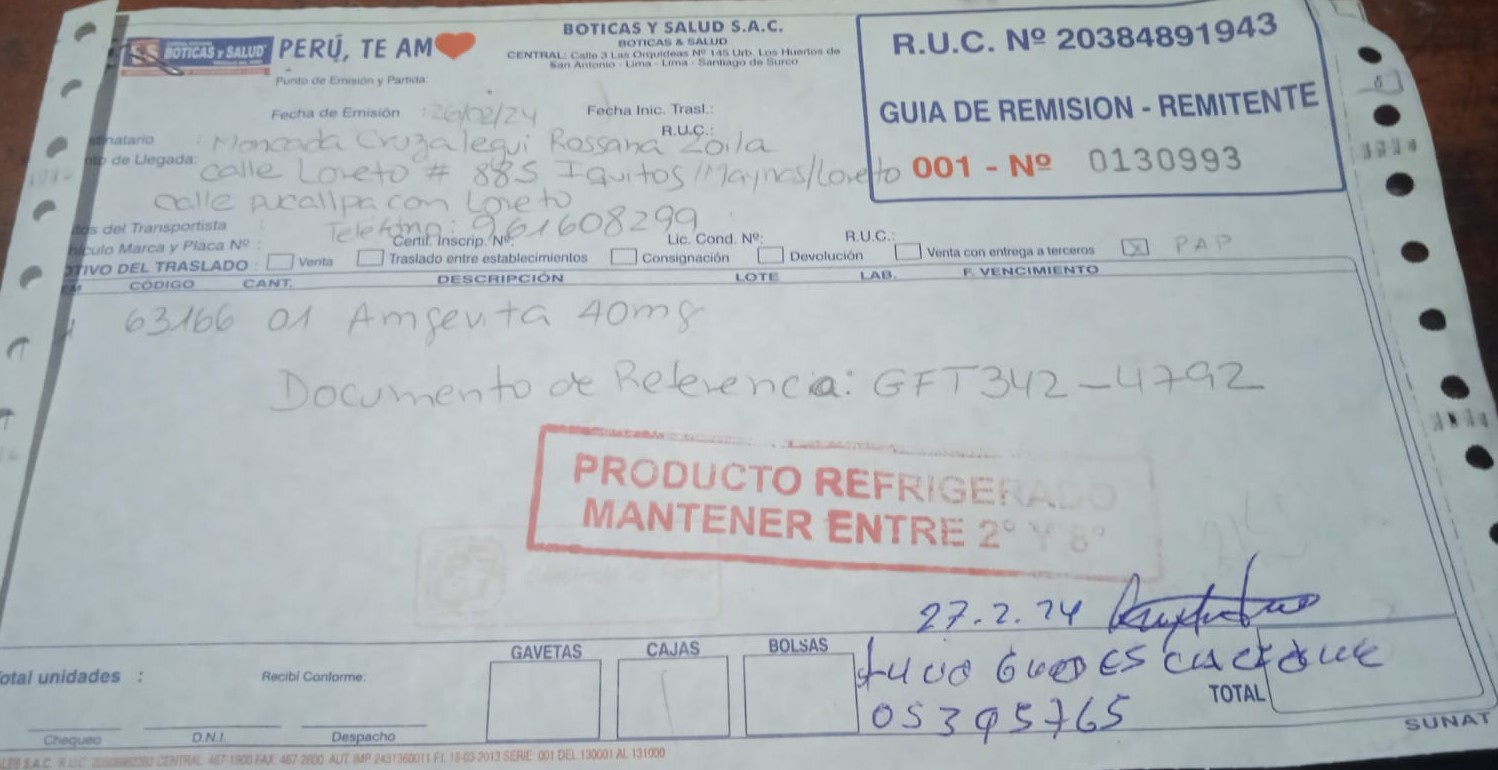 BOTICAS Y SALUD PERÚ, TE AM
BOTICAS Y SALUD S.A.C.
BOTICAS & SALUD
CENTRAL: Calle 3 Las Orquídeas Nº 145 Urb. Los Huertos de
San Antonio - Lima - Lima - Santiago de Surco
R.U.C. Nº 20384891943
GUIA DE REMISION - REMITENTE
001 - Nº 0130993
Punto de Emisión y Partida:
Fecha de Emisión : 26/02/24 Fecha Inic. Trasl.:
: Moncada Cruzalegui Rossana Zoila R.U.C.:
de Llegada: calle Loreto # 885 Iquitos/Maynas/Loreto
calle pucallpa con Loreto
del Transportista Teléfono: 961608299
Marca y Placa Nº : Certif. Inscrip. Nº: Lic. Cond. Nº: R.U.C.:
TIVO DEL TRASLADO : Venta Traslado entre establecimientos Consignación Devolución Venta con entrega a terceros X PAP
CÓDIGO CANT. DESCRIPCIÓN LOTE LAB. F. VENCIMIENTO
63166 01 Amgevita 40mg
Documento de Referencia: GFT342-4792
PRODUCTO REFRIGERADO
MANTENER ENTRE 2° Y 8°
27.2.24
05395765
GAVETAS CAJAS BOLSAS
otal unidades : Recibí Conforme:
TOTAL
Chequeo D.N.I. Despacho
SUNAT
CENTRAL: 467-1900 FAX: 467-2600 AUT. IMP 2431360011 F.I. 18-03-2013 SERIE: 001 DEL 130001 AL 131000